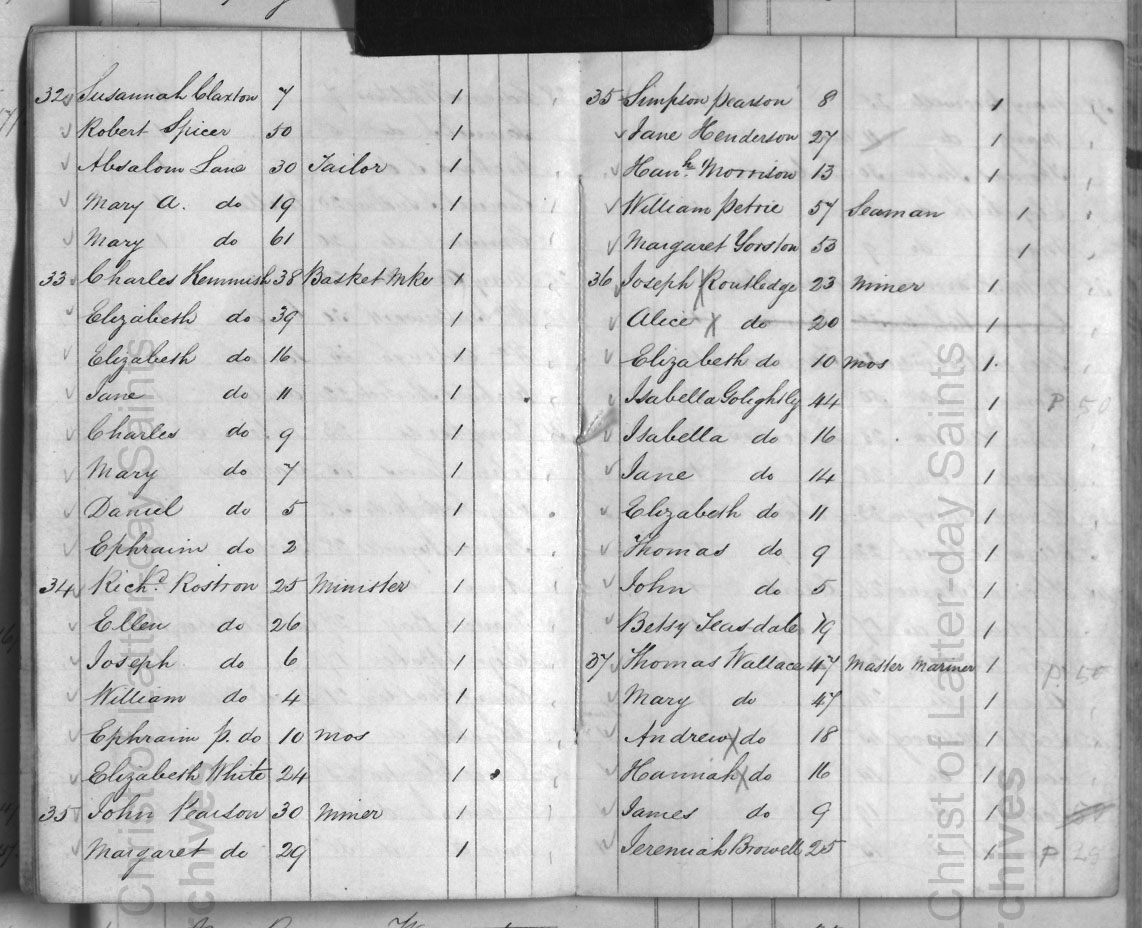 32 Susannah Claxton 7 1
Robert Spicer 50 1
Absalom Lane 30 Tailor 1
Mary A. do 19 1
Mary do 61 1
33 Charles Kemmish 38 Basket Mke 1
Elizabeth do 39 1
Elizabeth do 16 1
Jane do 11 1
Charles do 9 1
Mary do 7 1
Daniel do 5 1
Ephraim do 2 1
34 Richd. Rostron 25 Minister 1
Ellen do 26 1
Joseph do 6 1
William do 4 1
Ephraim P. do 10 mos 1
Elizabeth White 24 1
35 John Pearson 30 Miner 1
Margaret do 29 1
35 Simpson Pearson 8 1
Jane Henderson 27 1
Hanh. Morrison 13 1
William Petrie 57 Seaman 1
Margaret Yorston 53 1
36 Joseph X Routledge 23 Miner 1
Alice X do 20 1
Elizabeth do 10 mos 1
Isabella Golightly 44 1 P. 50
Isabella do 16 1
Jane do 14 1
Elizabeth do 11 1
Thomas do 9 1
John do 5 1
Betsy Teasdale 19 1
37 Thomas Wallace 47 Master Mariner 1 P. 50
Mary do 47 1
Andrew X do 18 1
Hannah X do 16 1
James do 9 1
Jeremiah Browell 25 1 P
Christ of Latter-day Saints
Archives
Christ of Latter-day Saints
rchives